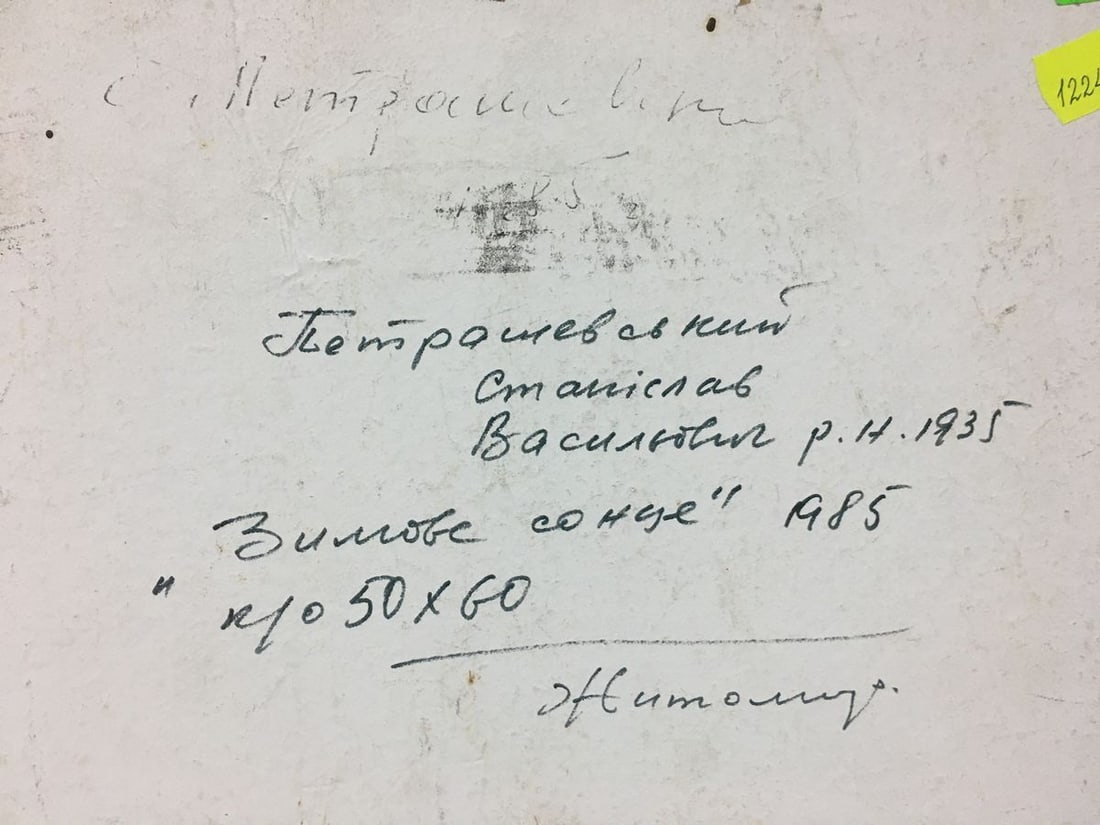 С. Петрашевськ
1224
85
Петрашевський
Станіслав
Васильович р.н.1935
"Зимове сонце" 1985
к/о 50 х 60
Житомир.